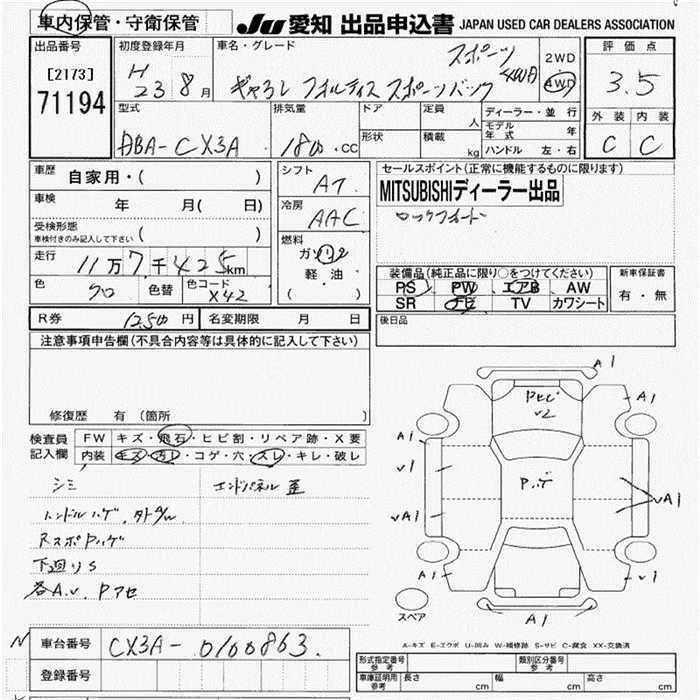 車内保管・守衛保管
JU 愛知 出品申込書 JAPAN USED CAR DEALERS ASSOCIATION
出品番号
[2173]
71194
初度登録年月
H 23 8月
車名・グレード
スポーツ 4WD
ギャラン フォルティス スポーツバック
2WD
4WD
評価点
3.5
外装 内装
C C
型式
DBA-CX3A
排気量
1800.CC
ドア
形状
定員
人
積載
kg
ディーラー・並行
モデル年式 年
ハンドル 左・右
車歴
自家用・( )
車検 年 月( 日)
受検形態
車検付きのみ記入して下さい ( )
走行
11万7千425km
色
クロ
色替
色コード
X42
シフト
AT
冷房
AAC
燃料
ガソリン
軽油
( )
セールスポイント(正常に機能するものに限ります)
MITSUBISHIディーラー出品
ロックフォード
装備品(純正品に限り○をつけてください)
PS PW エアB AW
SR ナビ TV カワシート
新車保証書
有・無
後日品
R券 12500円
名変期限 月 日
注意事項申告欄(不具合内容等は具体的に記入して下さい)
修復歴 有(箇所
検査員記入欄
FW キズ・飛石・ヒビ割・リペア跡・X要
内装 キズ・汚レ・コゲ・穴・スレ・キレ・破レ
シミ
エンドパネル歪
ハンドルハゲ、
RスポPハゲ
下廻りS
各A.U. Pアセ
A1
PトビU2
A1
A1
U1
Pハゲ
UA1
UA1
A1
U1
A1
スペア
A-キズ E-エクボ U-凹み W-補修跡 S-サビ C-腐食 XX-交換済
車台番号 CX3A-0100863
登録番号
形式指定番号 参考
類別区分番号 参考
車庫証明用 参考
長さ cm
幅 cm
高さ cm